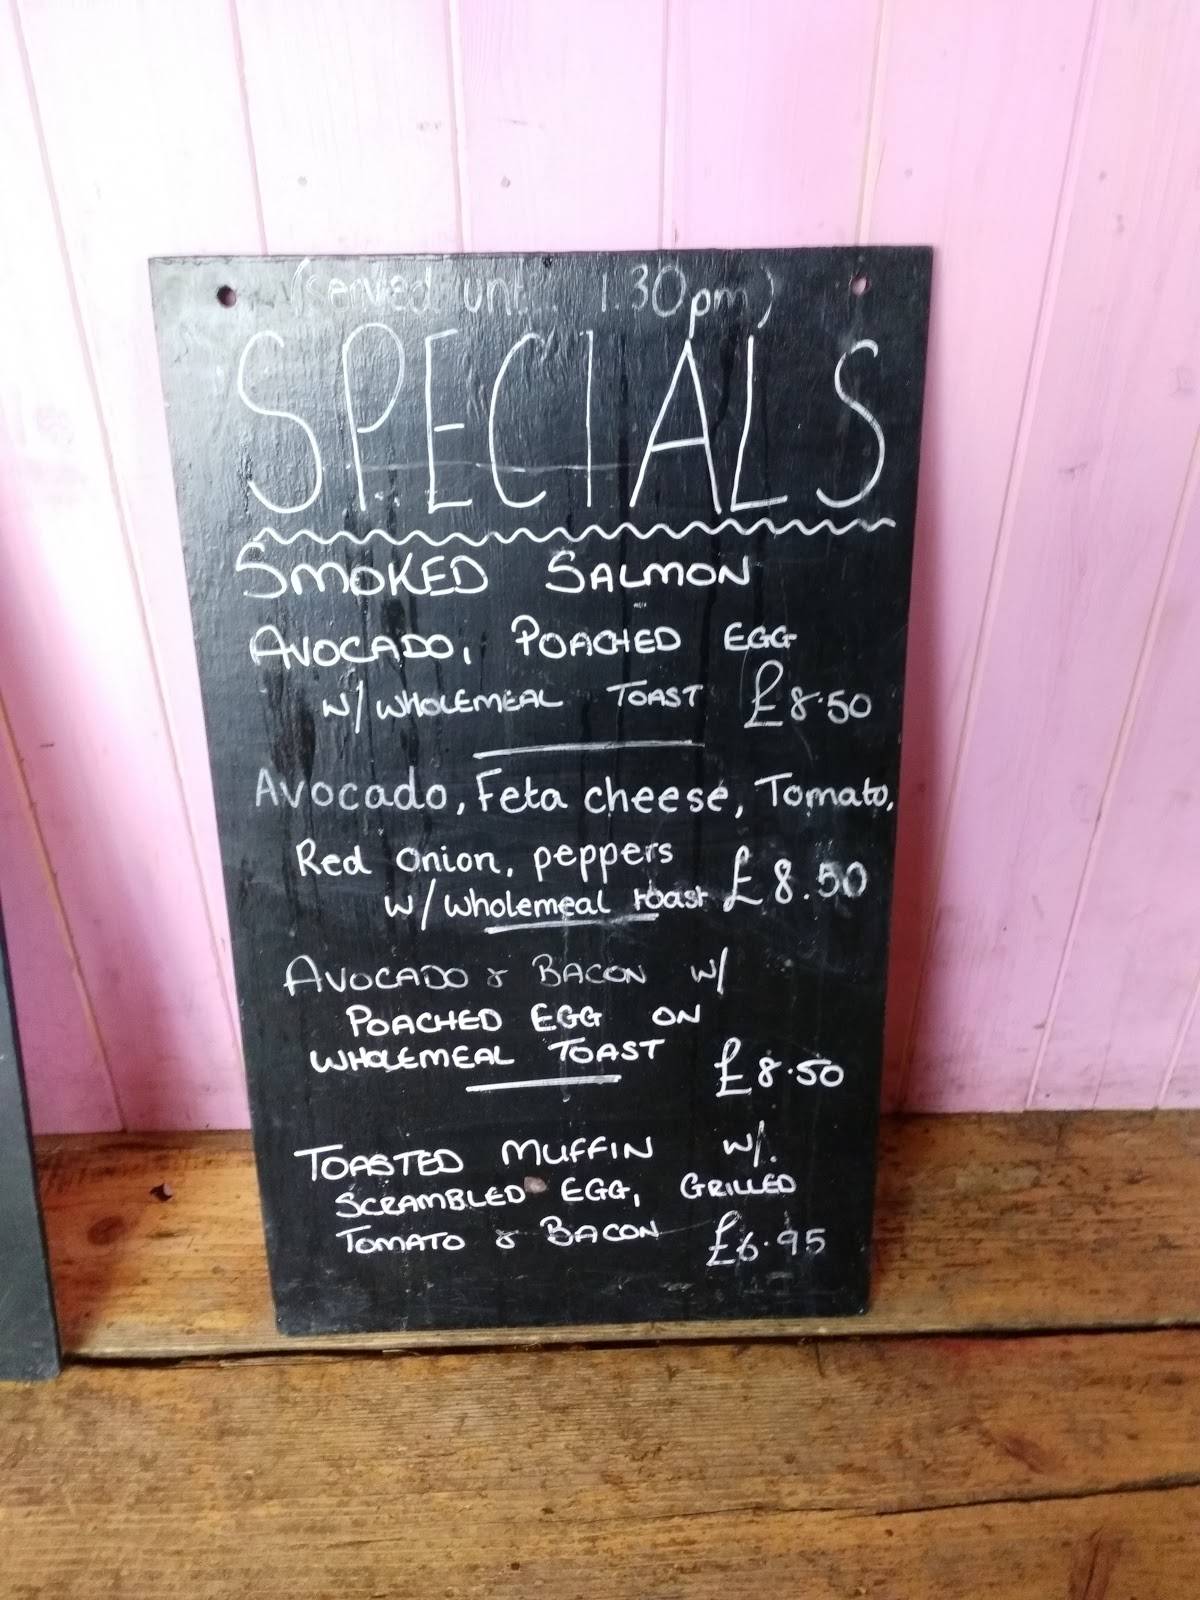 (served unt.. 1.30pm)
SPECIALS
SMOKED SALMON
AVOCADO, POACHED EGG
W/ WHOLEMEAL TOAST £8.50
Avocado, Feta cheese, Tomato,
Red onion, peppers
w/ wholemeal toast £8.50
AVOCADO & BACON W/
POACHED EGG ON
WHOLEMEAL TOAST £8.50
TOASTED MUFFIN W/.
SCRAMBLED EGG, GRILLED
TOMATO & BACON £6.95